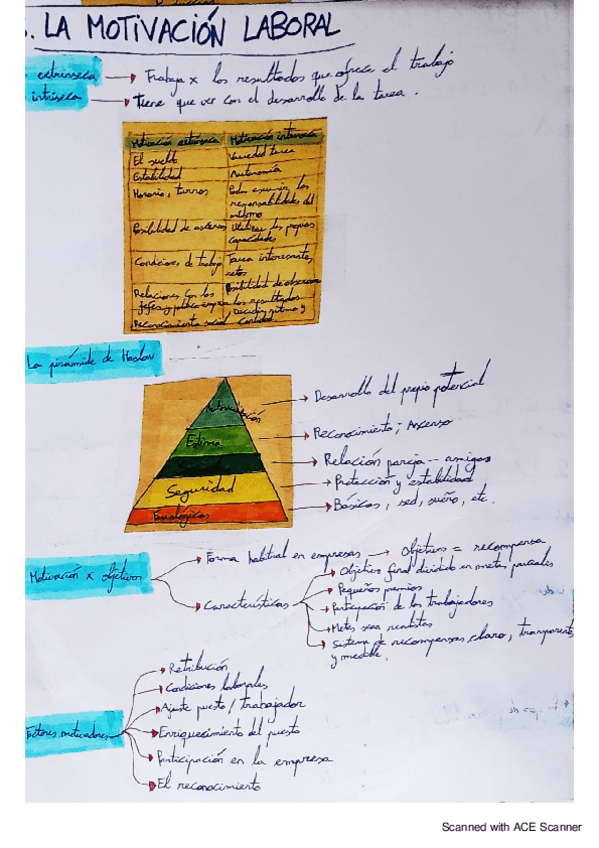 . LA MOTIVACIÓN LABORAL
extrínseca → Trabaja x los resultados que ofrece el trabajo
intríseca → Tiene que ver con el desarrollo de la tarea.
Motivación extrínseca Motivación intrínseca
El sueldo Variedad tarea
Estabilidad Autonomía
Horario, turnos Poder asumir las responsabilidades del mismo
Posibilidad de ascenso Utilizar las propias capacidades
Condiciones de trabajo Tarea interesantes, retos
Relaciones con los jefes y Posibilidad de observar los resultados
Reconocimiento social Decidir ritmo y cantidad
La pirámide de Maslow
→ Desarrollo del propio potencial
Estima → Reconocimiento; Ascenso
→ Relación pareja - amigos
Seguridad → Protección y estabilidad
Fisiológicas → Básicas, sed, sueño, etc.
Motivación x objetivos
→ Forma habitual en empresas → Objetivos = recompensa
→ Características
→ Objetivo final dividido en metas parciales
→ Pequeños premios
→ Participación de los trabajadores
→ Metas sean realistas
→ Sistema de recompensas claro, transparente
y medible.
Factores motivadores
→ Retribución
→ Condiciones laborales
→ Ajuste puesto / trabajador
→ Enriquecimiento del puesto
→ Participación en la empresa
→ El reconocimiento
Scanned with ACE Scanner